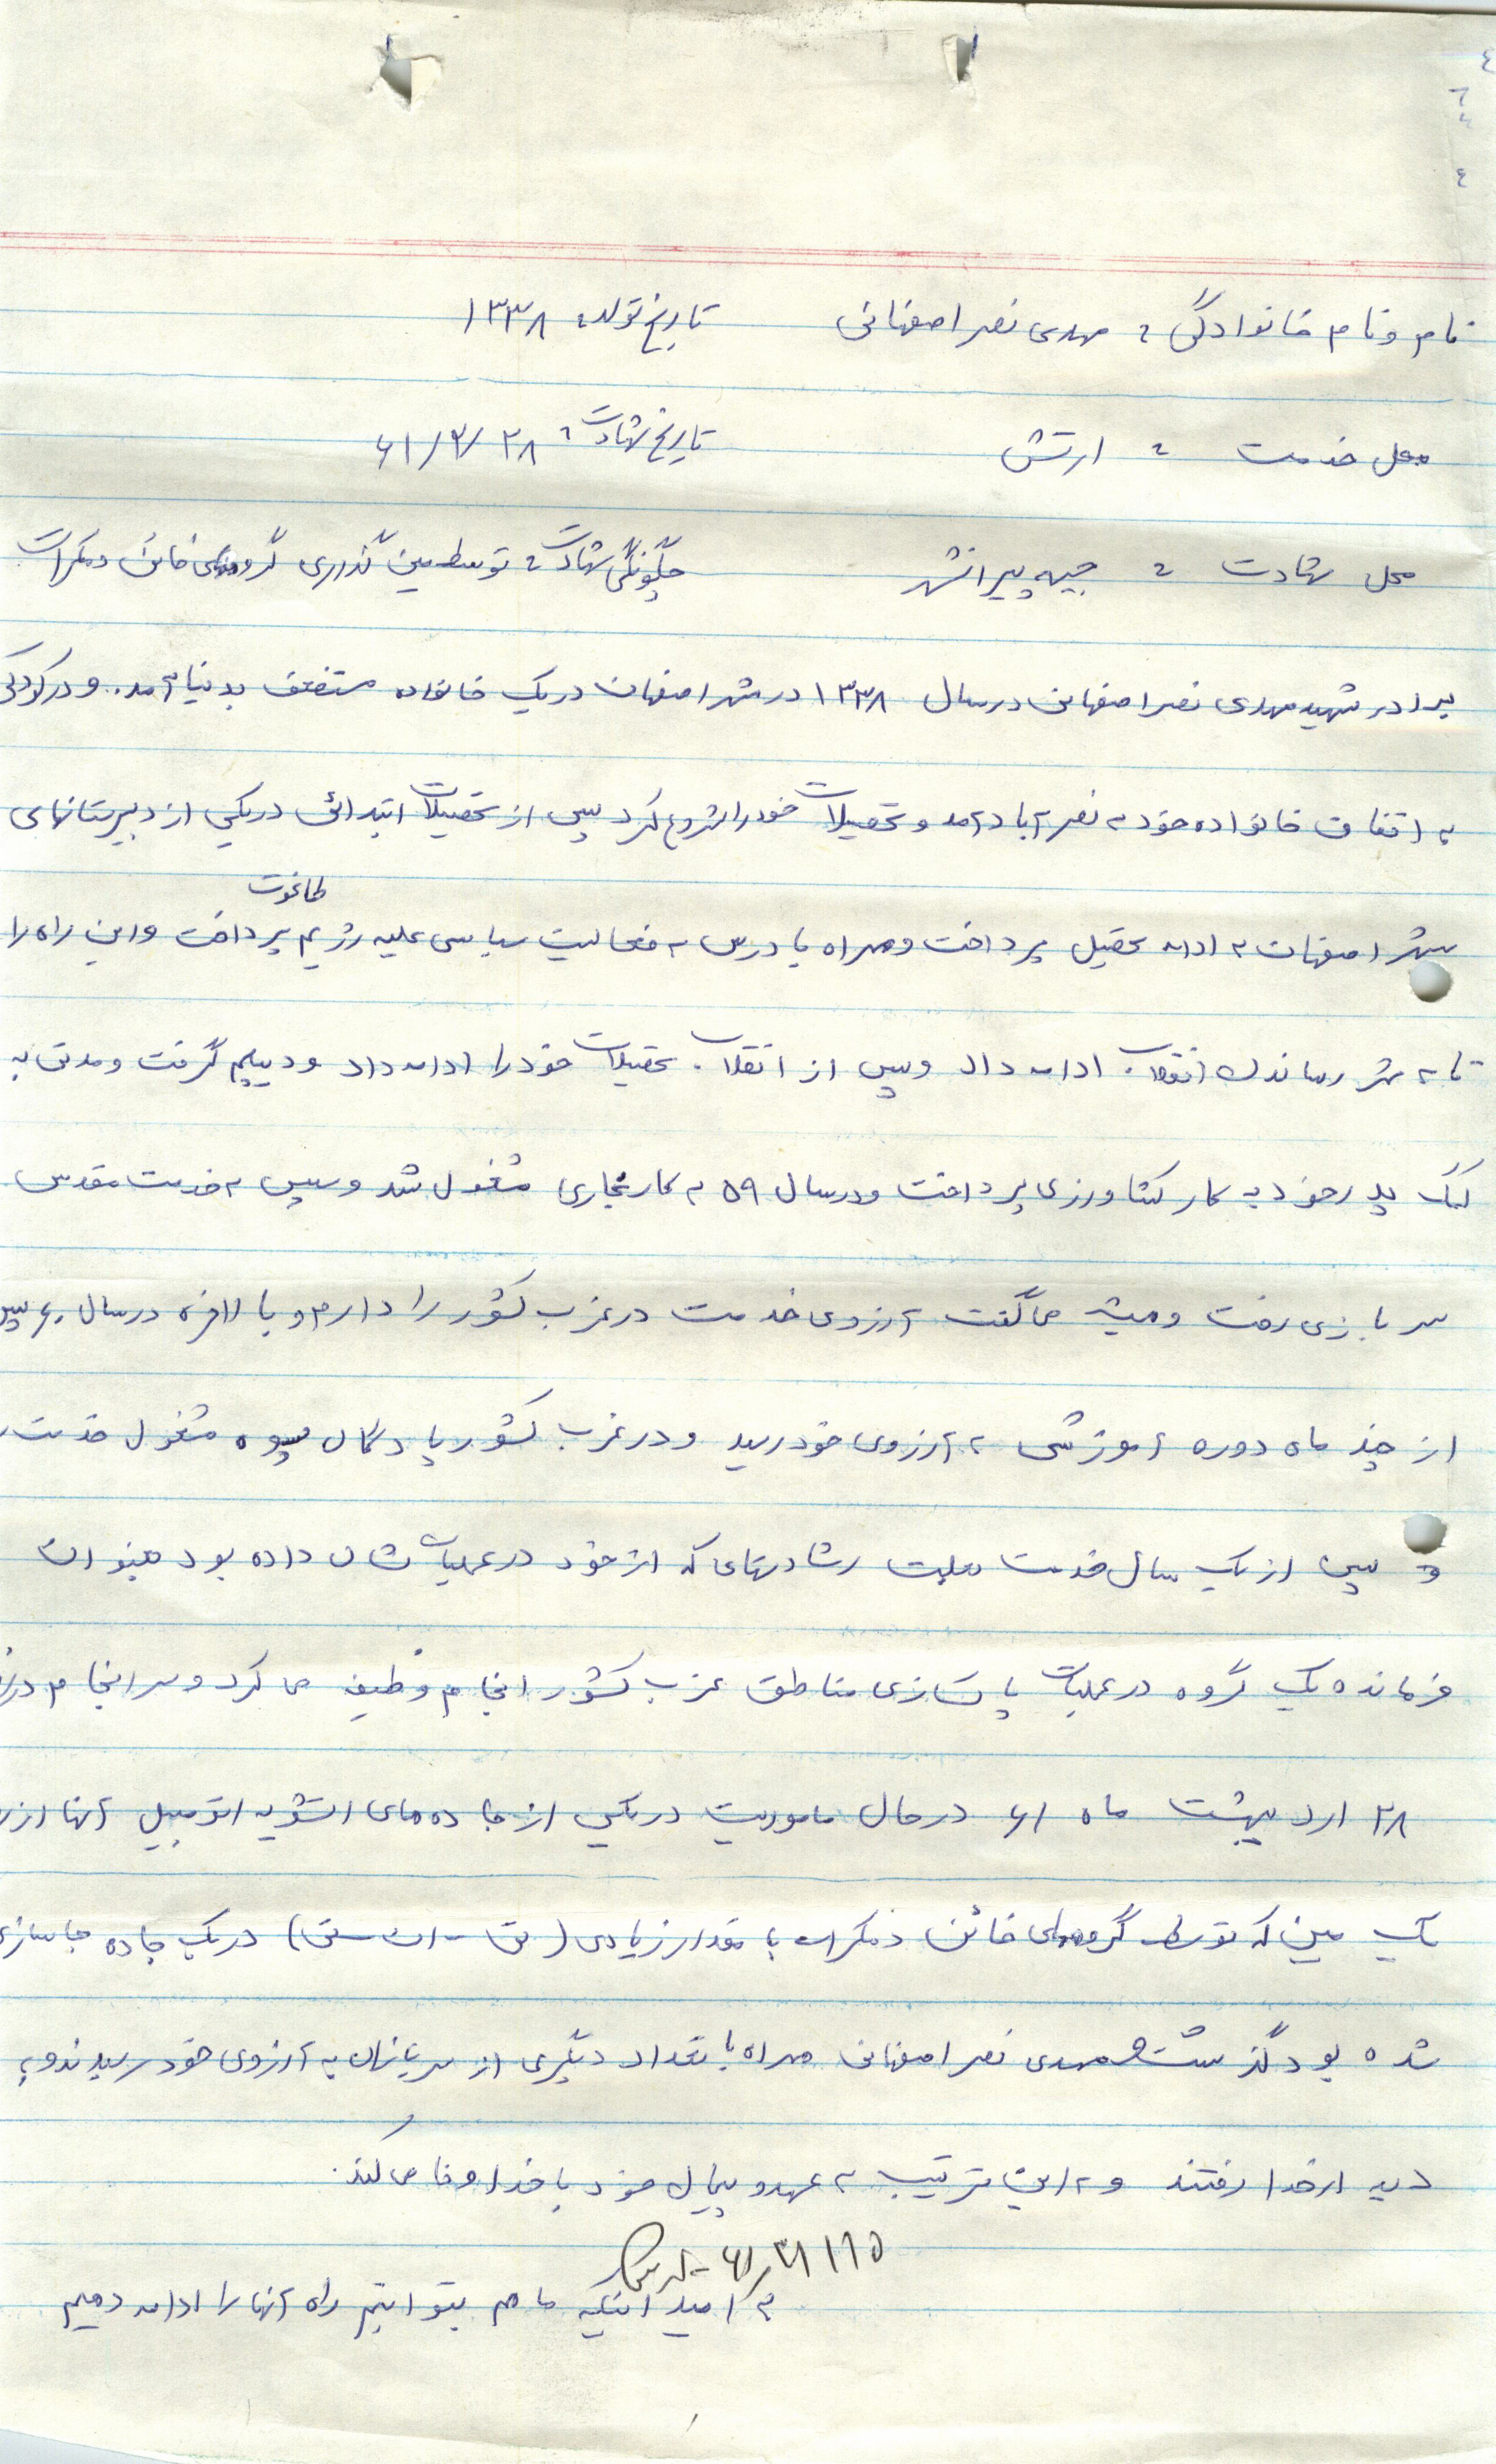 نام و نام خانوادگی : مهدی نصر اصفهانی تاریخ تولد: ۱۳۳۸
محل خدمت : ارتش تاریخ شهادت : ۶۱/۲/۲۸
محل شهادت : جبهه پیرانشهر چگونگی شهادت : توسط مین گذاری گروههای خائن دمکرات
برادر شهید مهدی نصر اصفهانی در سال ۱۳۳۸ در شهر اصفهان در یک خانواده مستضعف بدنیا آمد. و در کودکی
به اتفاق خانواده خود به نصرآباد آمد و تحصیلات خود را شروع کرد سپس از تحصیلات ابتدائی در یکی از دبیرستانهای
طاغوت
شهر اصفهان به ادامه تحصیل پرداخت و همراه با درس به فعالیت سیاسی علیه رژیم پرداخت و این راه را
تا به ثمر رساندن انقلاب ادامه داد وپس از انقلاب تحصیلات خود را ادامه داد و دیپلم گرفت و مدتی به
کمک پدر خود به کار کشاورزی پرداخت و در سال ۵۹ به کار نجاری مشغول شد و سپس به خدمت مقدس
سربازی رفت و همیشه می گفت آرزوی خدمت در غرب کشور را دارم و بالاخره در سال ۶۰ پس
از چند ماه دوره آموزشی به آرزوی خود رسید و در غرب کشور پادگان پسوه مشغول خدمت
و پس از یک سال خدمت بعلت رشادتهای که از خود در عملیات نشان داده بود بعنوان
فرمانده یک گروه در عملیات پاکسازی مناطق غرب کشور انجام وظیفه می کرد و سرانجام در
۲۸ اردیبهشت ماه ۶۱ در حال ماموریت در یکی از جاده های اشنویه اتومبیل آنها از
یک مین که توسط گروههای خائن دمکرات با مقدار زیادی (تی - ان - تی) در یک جاده جاسازی
شده بود گذشت و مهدی نصر اصفهانی همراه با تعداد دیگری از سربازان به آرزوی خود رسیدند و به
دیدار خدا رفتند و به این ترتیب به عهد و پیمان خود با خدا وفا می کند.
به امید اینکه ما هم بتوانیم راه آنها را ادامه دهیم